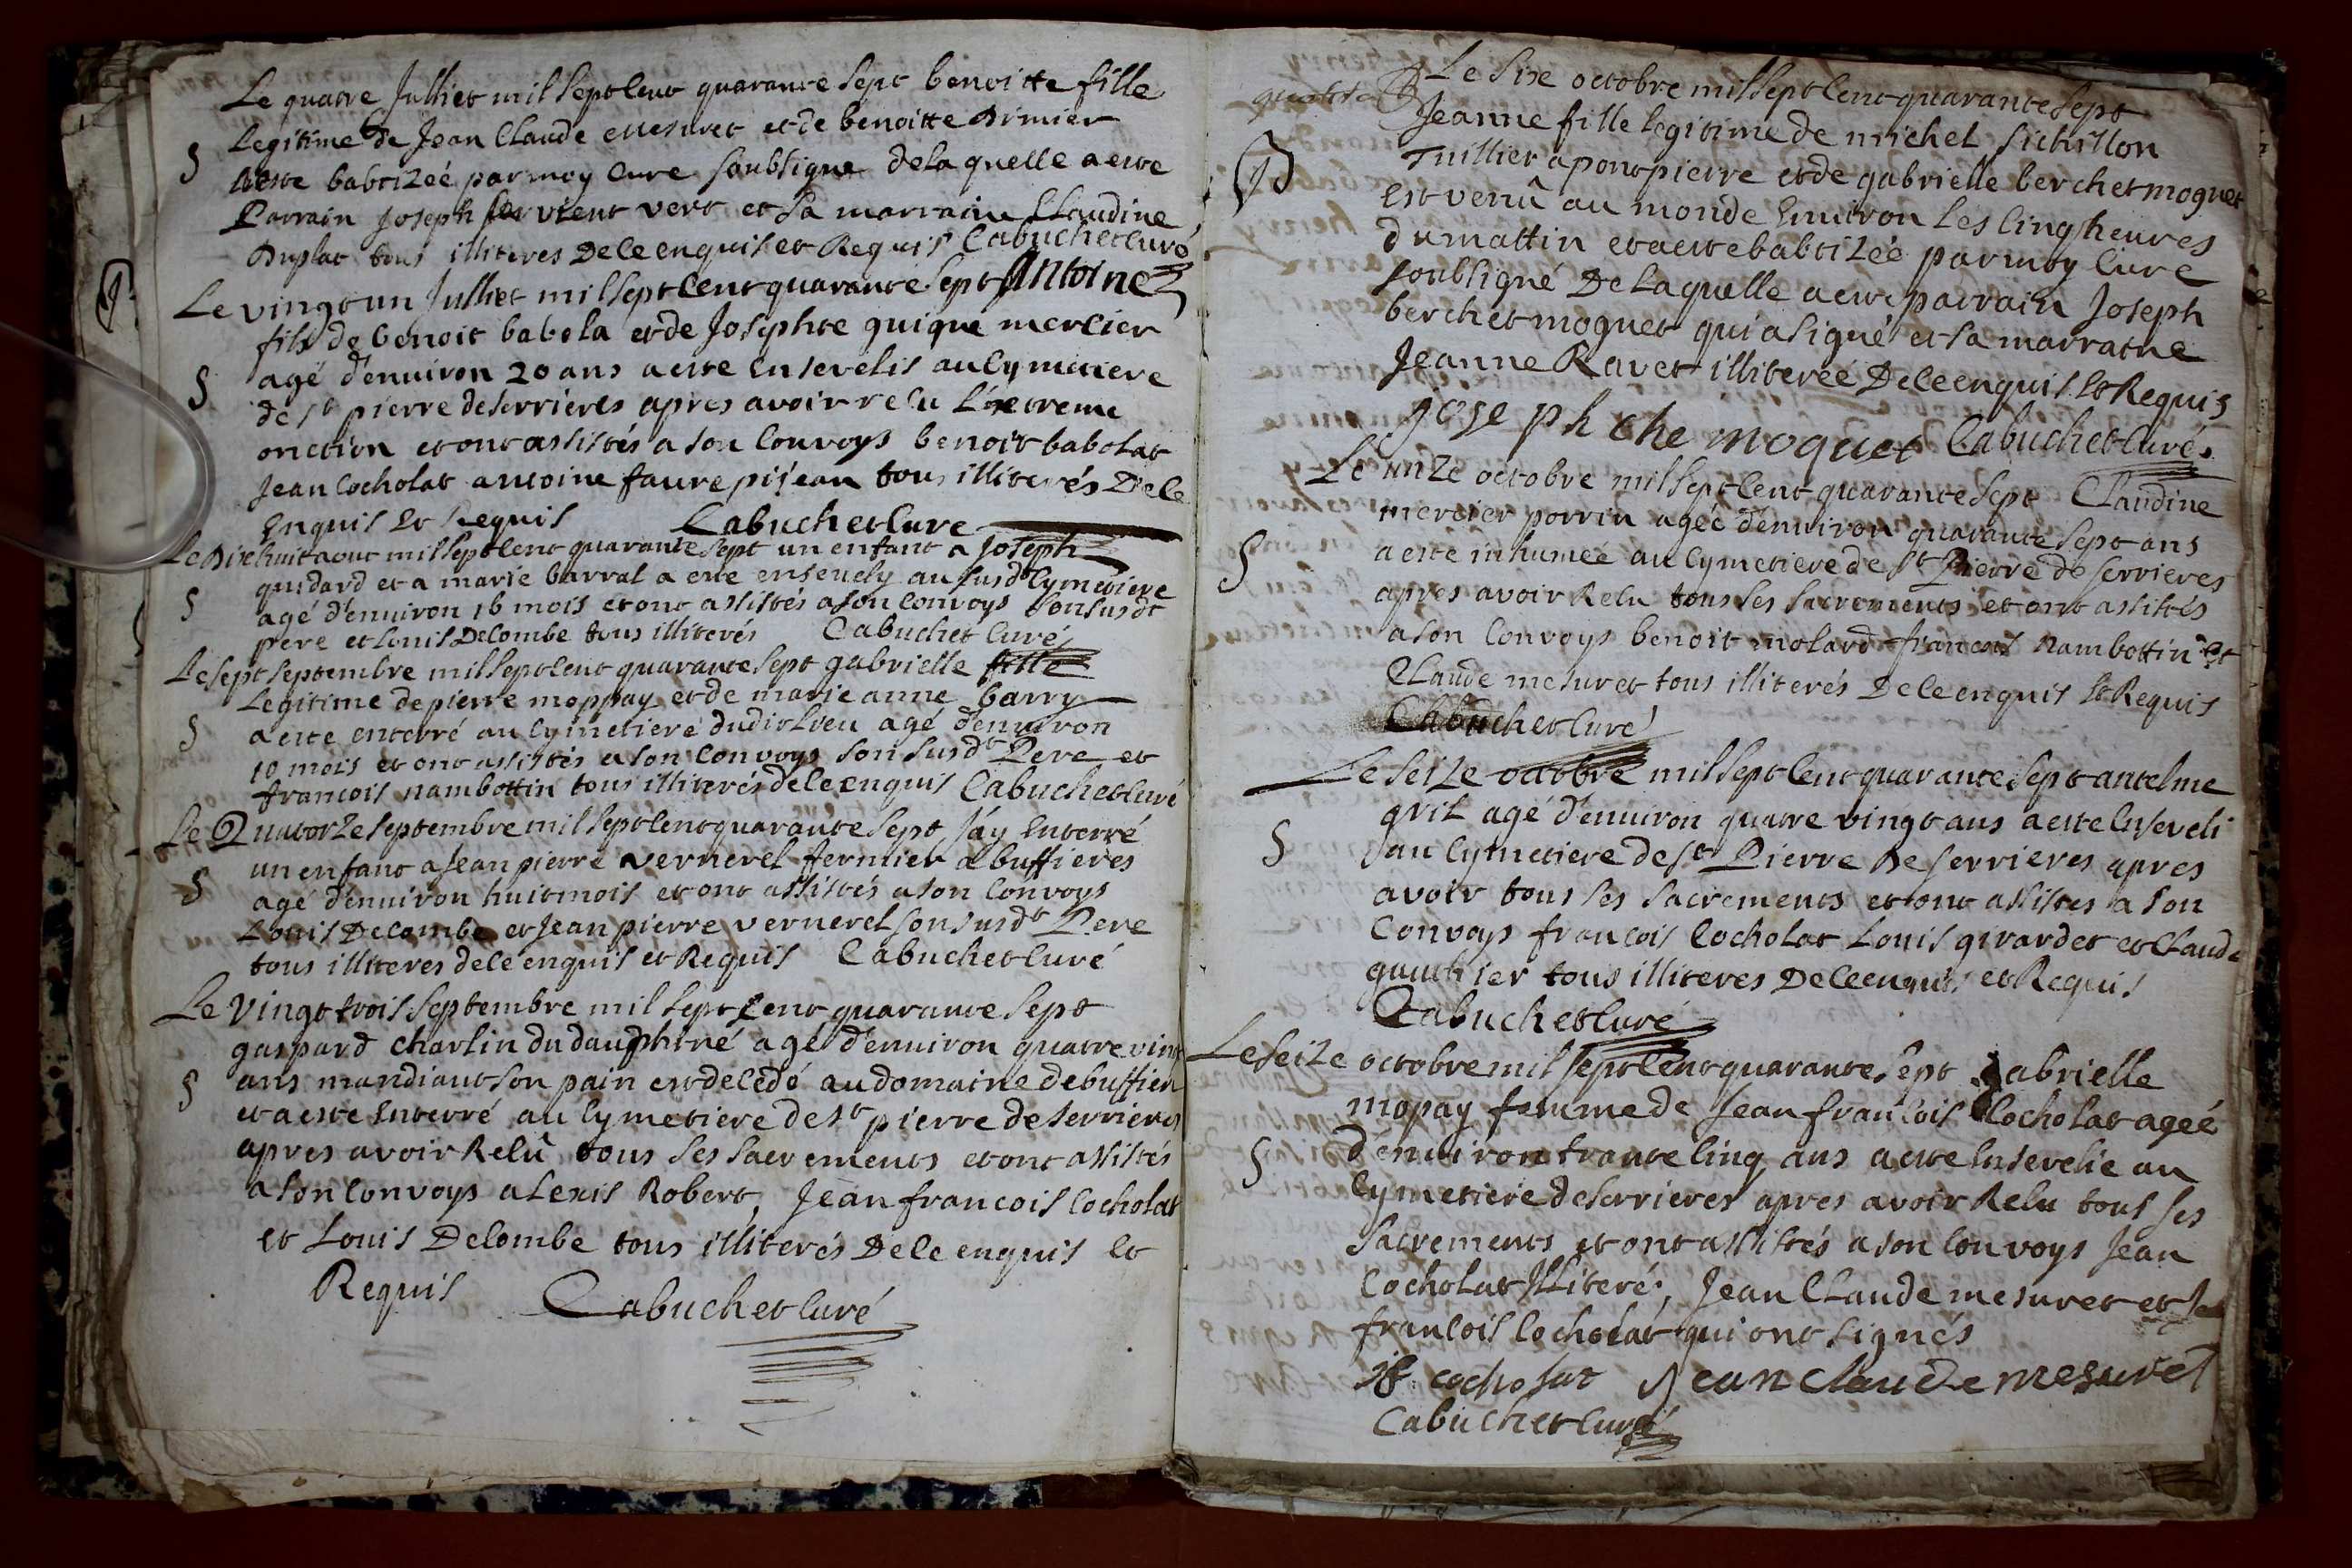 Le quatre Julliet mil sept cent quarante sept benoitte fille
Legitime de Jean Claude mesuret et de benoitte Dimier
§ a este babtizeé par moy Cure soubsigne de la quelle a este
Parrain Joseph servient vert et sa marraine Claudine
Duplat tous illiteres De ce enquis et Requis Cabuchet Curé
Le vingt un Julliet mil sept Cent quarante sept Antoine
fils de benoit babola et de Josephte guigue mercier
§ agé d'enuiron 20 ans a este Ensevelis au Cymitiere
de st pierre de serrieres apres avoir recu L'extreme
onction et ont assistés a son Convoys benoit babolat
Jean Cocholat antoine faure pijean tous illiterés De ce
Enquis Et Requis Cabuchet Cure
Le Dix huit aout mil sept Cent quarante sept un enfant a Joseph
guidard et a marie barral a ete enseuely au susdt Cymetiere
§ agé d'enuiron 16 mois et ont assistés a son Convoys son susdt
pere et Louis Decombe tous illiterés Cabuchet Curé
Le sept septembre mil sept Cent quarante sept gabrielle fille
Legitime de pierre moppay et de marie anne barry
§ a este enterré au Cymetiere dudit Lieu agé d'enuiron
10 mois et ont assistés a son Convoys son susdt Pere et
francois nambottin tous illiterés de ce enquis Cabuchet Curé
Le Quatorze septembre mil sept Cent quarante sept J'ay Enterré
un enfant a Jean pierre vernerel fermier a buffieres
§ agé d'enuiron huit mois et ont assistés a son Convoys
Louis Decombe et Jean pierre vernerel son susdt Pere
tous illiteres de ce enquis et Requis Cabuchet Curé
Le vingt trois septembre mil sept Cent quarante sept
gaspard charlin du dauphiné agé d'enuiron quatre vint
§ ans mandiant son pain est decedé au domaine de buffier
et a este Enterré au Cymetiere de st pierre de serrieres
apres avoir Recû tous ses sacrements et ont assistés
a son Convoys alexis Robert, Jean francois Cocholat
et Louis Decombe tous illiterés De ce enquis Et
Requis Cabuchet Curé
Le Six octobre mil sept Cent quarante sept
Jeanne fille legitime de michel sichillon
Tuillier a pont pierre et de gabrielle berchet moguet
Est venû au monde Enuiron les Cinq heures
du mattin et a este babtizeé par moy Cure
soubsigné De Laquelle a este parrain Joseph
berchet moguet qui a signé et sa marraine
Jeanne Ravet illitereé De ce enquis Et Requis
joseph che moquet Cabuchet Curé
Le unze octobre mil sept Cent quarante sept Claudine
mercier porrin ageé d'enuiron quarante sept ans
§ a este inhumeé au Cymetiere de st Pierre de serrieres
apres avoir Recu tous ses sacrements et ont assistés
a son Convoys benoit molard francois nambottin Et
Claude mesuret tous illiterés De ce enquis Et Requis
Cabuchet Curé
Le seize octobre mil sept Cent quarante sept antelme
gril agé d'enuiron quatre vingt ans a este Enseveli
§ au Cymetiere de st Pierre De serrieres apres
avoir tous ses sacrements et ont assistes a son
Convoys francois Cocholat Louis girardet et Claude
gauthier tous illiteres De ce enquis et Requis
Cabuchet Curé
Le seize octobre mil sept Cent quarante sept gabrielle
mopay femme de Jean francois Cocholat ageé
§ d'enuiron trante Cinq ans a este Ensevelie au
Cymetiere de serrieres apres avoir Recu tous ses
sacrements et ont assistés a son Convoys Jean
Cocholat Illiteré, Jean Claude mesuret et Jean
francois Cocholat qui ont signés
jf cocholat Jean claude mesuret
Cabuchet Curé